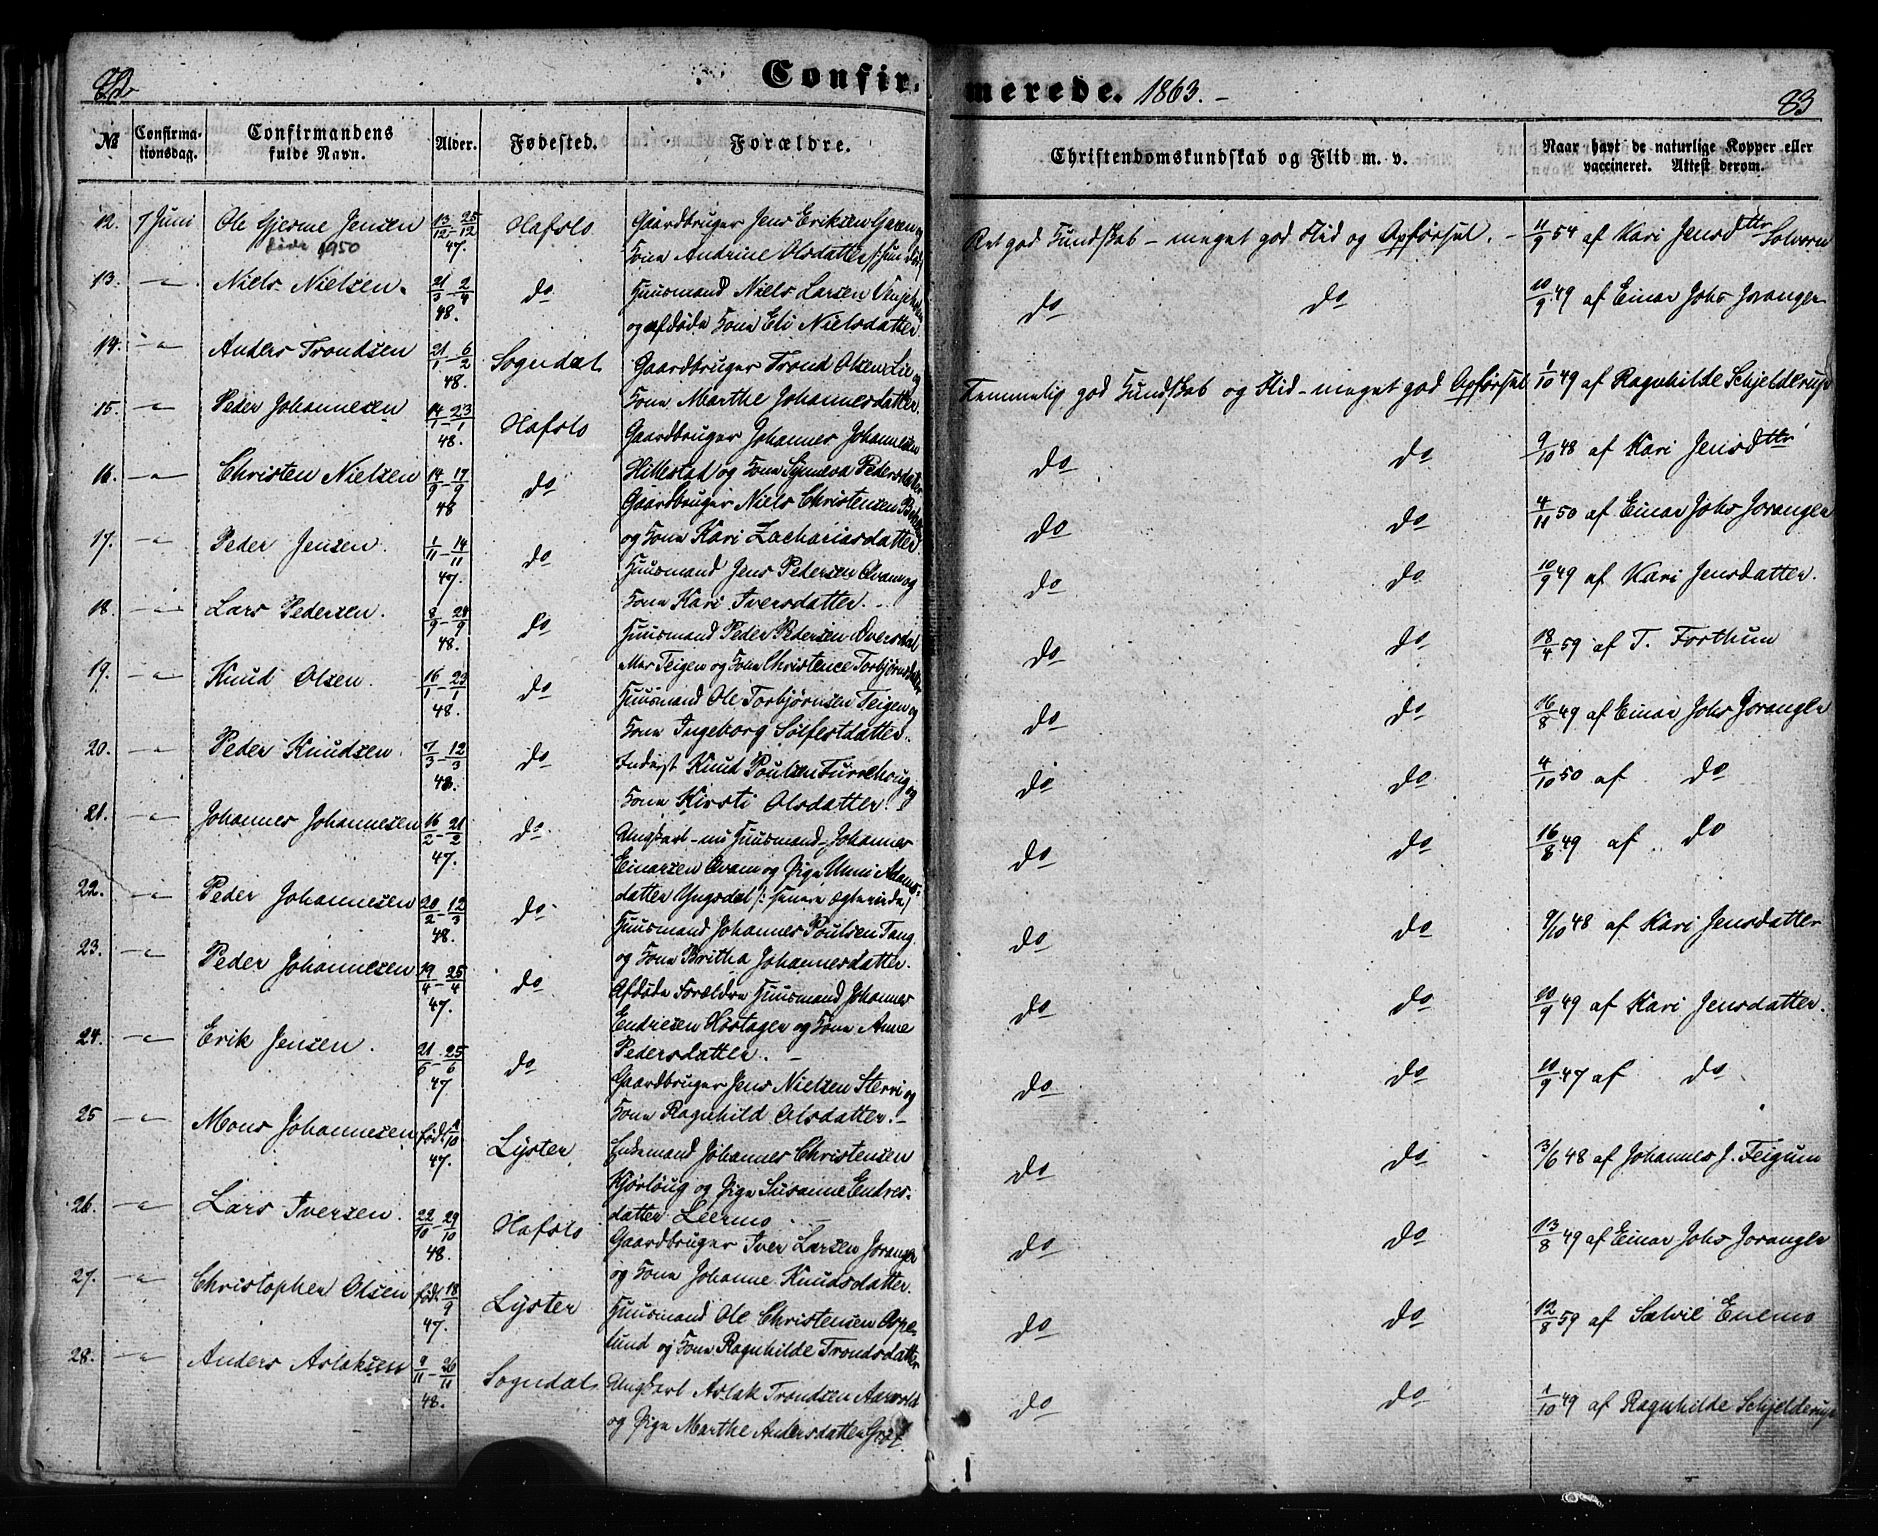 82
Confir-
merede. 1863.-
83
№
Confirma-
tionsdag.
Confirmandens
fulde Navn.
Alder.
Fødested.
Forældre.
Christendomskundskab og Flid m. v.
Naar havt de naturlige Kopper eller
vaccineret. Attest derom.
12. 7 Juni Ole Gjerme Jensen 13/12-25/12 47. Hafslo Gaardbruger Jens Eriksen og Ret god Kundskab - meget god Flid og Opførsel. - 11/9 54 af Kari Jensdttr Solvorn
1950
Kone Andrine Olsdatter
13. Niels Nielsen. 21/3-2/4 48. do Huusmand Niels Larsen do do 10/9 49 af Einar Johs Joranger
og afdøde Kone Eli Nielsdatter
14. Anders Trondsen 21/1-6/2 48. Sogndal Gaardbruger Trond Olsen Lie og Temmelig god Kundskab og Flid - meget god Opførsel 1/10 49 af Ragnhilde Schjelderup
Kone Marthe Johannesdatter.
15. Peder Johannesen 14/1-23/1 48. Hafslo Gaardbruger Johannes Johannesen do do 9/10 48 af Kari Jensdttr
Hillestad og Kone Synneva Pedersdatter
16. Christen Nielsen 14/9-17/9 48 do Gaardbruger Niels Christensen do do 4/11 50 af Einar Johs Joranger
og Kone Kari Zachariasdatter
17. Peder Jensen. 1/11-14/11 47. do Huusmand Jens Pedersen Qvam og do do 10/9 49 af Kari Jensdatter.
Kone Kari Iversdatter. -
18. Lars Pedersen. 8/9-24/9 48. do Huusmand Peder Pedersen do do 18/4 59 af T. Forthun
Mar Teigen og Kone Christence Torbjørnsdatter
19. Knud Olsen. 16/1-23/1 48. do Huusmand Ole Torbjørnsen Teigen og do do 16/8 49 af Einar Johs Joranger
Kone Ingeborg Solfestdatter.
20. Peder Knudsen. 7/3-12/3 48. do Inderst Knud Poulsen Turrehoug og do do 4/10 50 af do
Kone Kirsti Olsdatter.
21. Johannes Johannesen 16/2-21/2 47. do Ungkarl - nu Huusmand - Johannes do do 16/8 49 af do
Einarsen Qvam og Pige Unni Adams-
datter Yngsdal /: senere ægteviede/
22. Peder Johannesen 20/2-12/3 48. do Huusmand Johannes Poulsen Tang do do 9/10 48 af Kari Jensdatter
og Kone Britha Johannesdatter.
23. Peder Johannesen 19/4-25/4 47. do Afdøde Forældre Huusmand Johannes do do 10/9 49 af Kari Jensdatter.
Endresen Høstager og Kone Anne
Pedersdatter. -
24. Erik Jensen. 21/6-25/6 47 do Gaardbruger Jens Nielsen Sterri og do do 10/9 47 af do
Kone Ragnhild Olsdatter. -
25 Mons Johannesen født 1/10 47. Lyster Enkemand Johannes Christensen do do 3/6 48 af Johannes J. Feigum
Kjørloug og Pige Susanne Endres-
datter Leermo
26. Lars Iversen. 22/10-29/10 48. Hafslo Gaardbruger Iver Larsen Joranger do do 13/8 49 af Einar Johs Joranger
og Kone Johanne Knudsdatter.
27. Christopher Olsen født 18/9 47. Lyster Huusmand Ole Christensen Aspe- do do 12/8 59 af Enemo
lund og Kone Ragnhilde Trondsdatter
28. Anders Aslaksen 9/11-26/11 48. Sogndal Ungkarl Aslak Trondsen do do 1/10 49 af Ragnhilde Schjelderup
og Pige Marthe Andersdatter